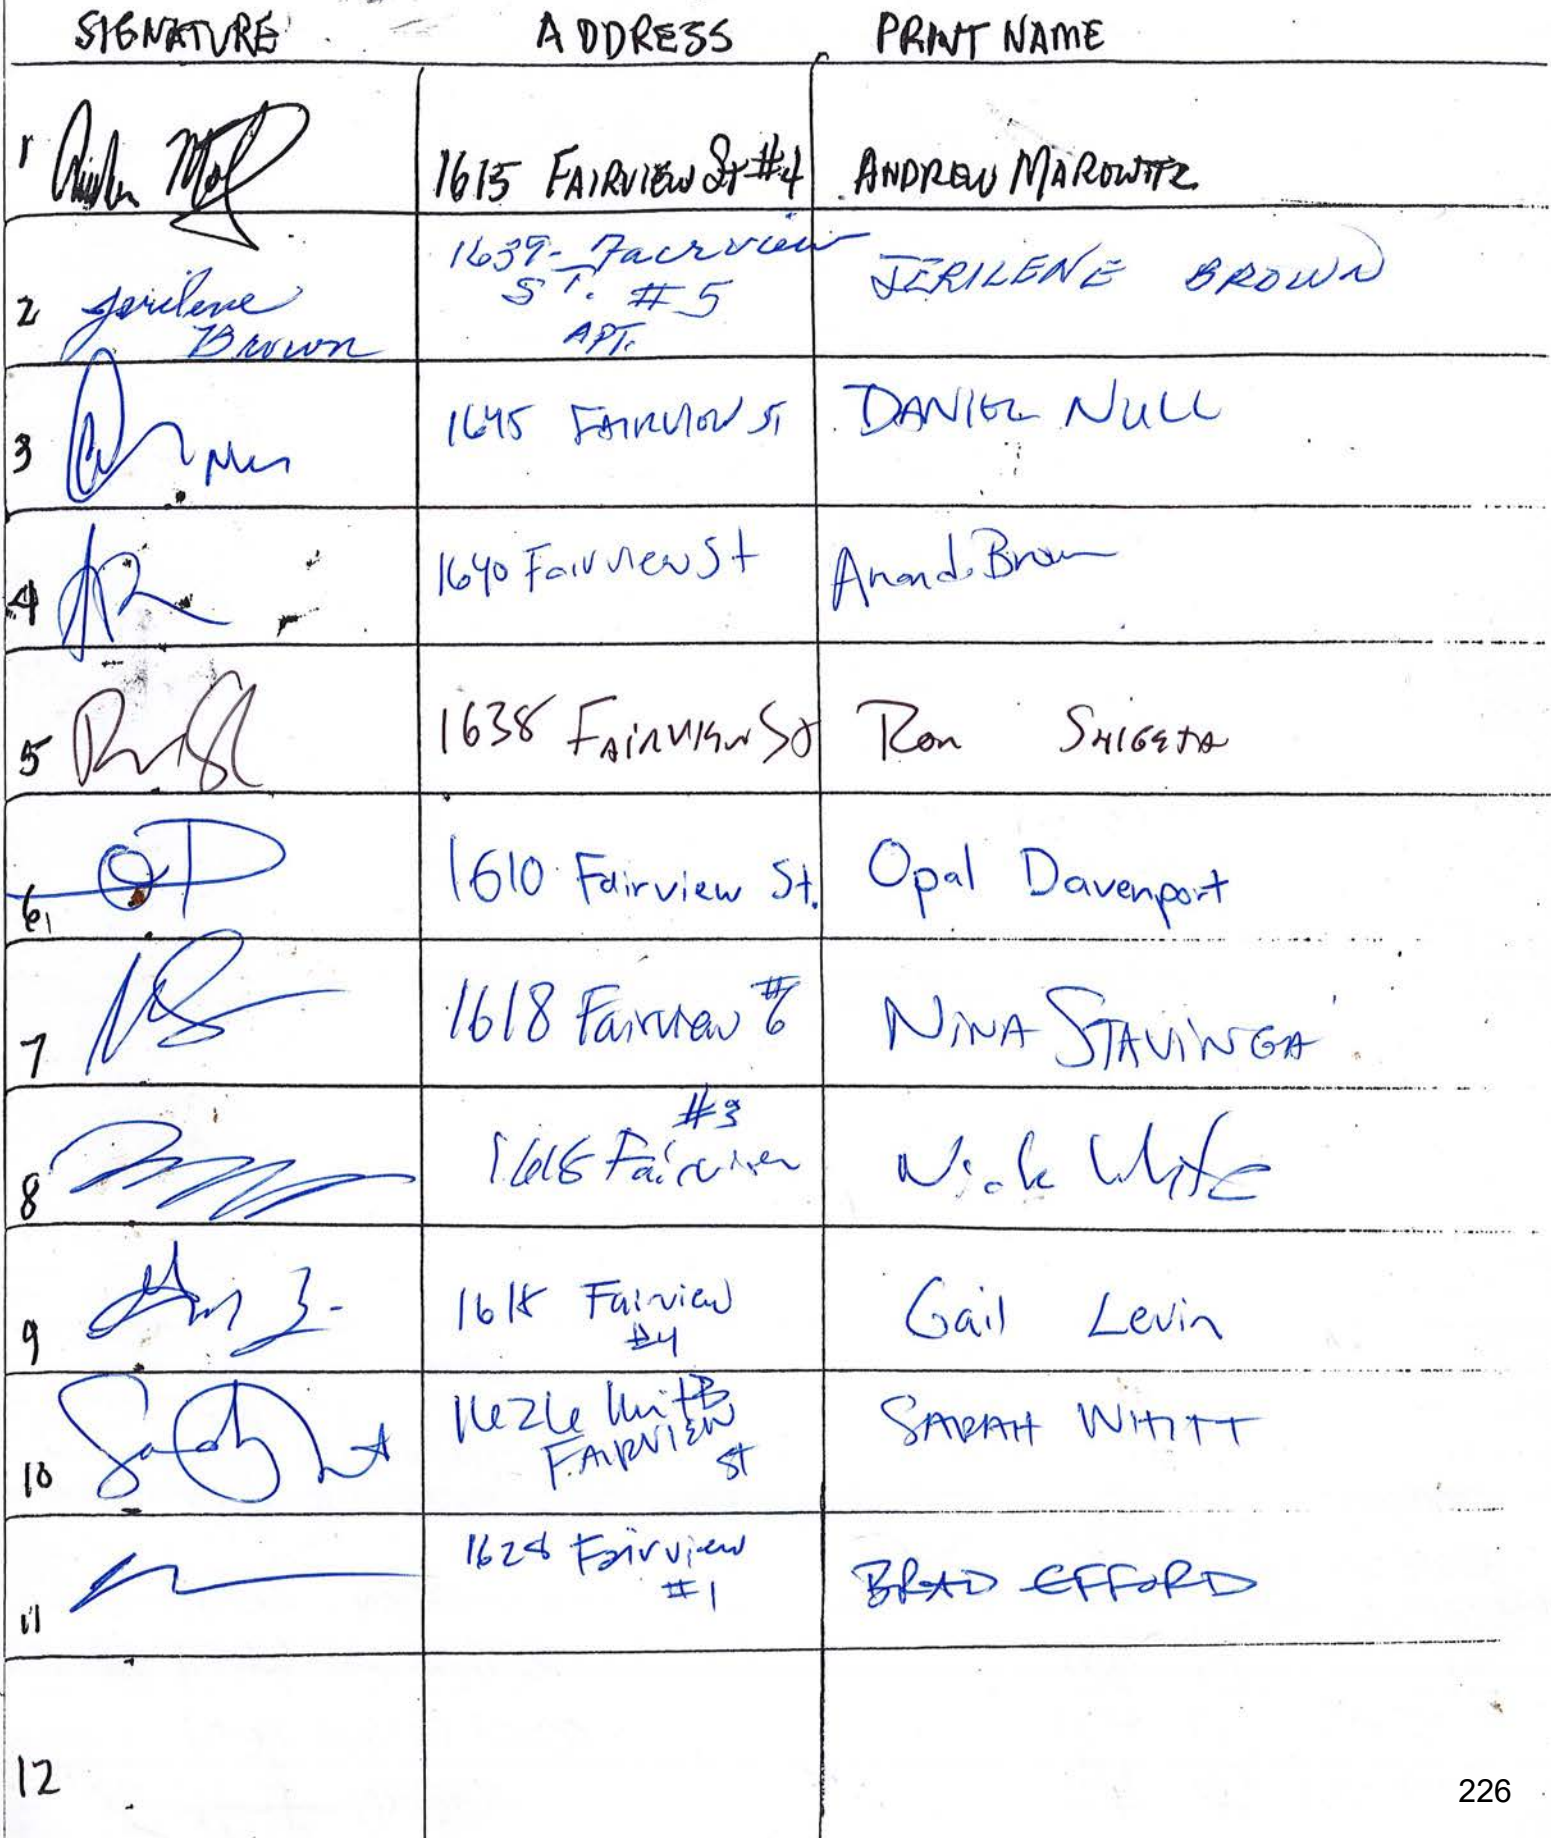 SIGNATURE ADDRESS PRINT NAME
1 1615 FAIRVIEW St #4 ANDREW MAROWITZ
2 Jerilene Brown 1639- Fairview ST. #5 APT. JERILENE BROWN
3 1645 FAIRVIEW ST DANIEL NULL
4 1640 Fairview St Brown
5 1638 FAIRVIEW St Ron SHIGETA
6, OD 1610 Fairview St. Opal Davenport
7 NS 1618 Fairview #6 NINA STAVINGA
8 #3 1618 Fairview Nick White
9 1618 Fairview #4 Gail Levin
10 Sarah 1626 Unit B FAIRVIEW St SARAH WHITT
11 1628 Fairview #1 BRAD EFFORD
12
226